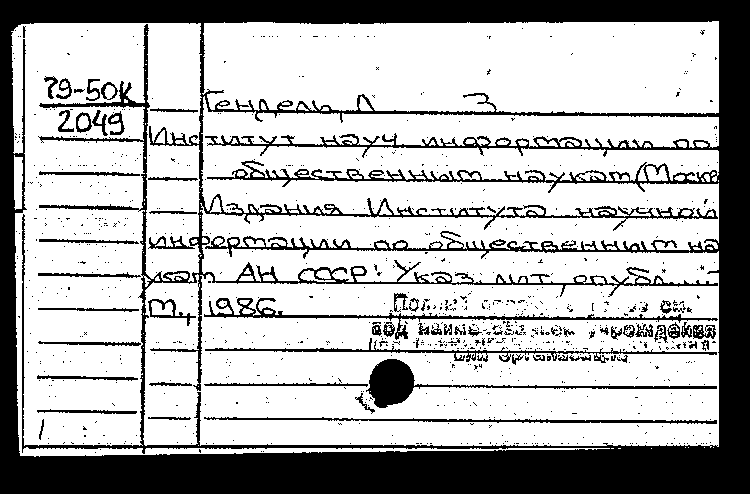 79-50К
2049
Гендель, Л З
Институт науч. информации по
общественным наукам (Москв
Издания Института научной
информации по общественным на
укам АН СССР: Указ. лит., опубл.
М., 1986.
см.
под наименованием учреждения
или организации